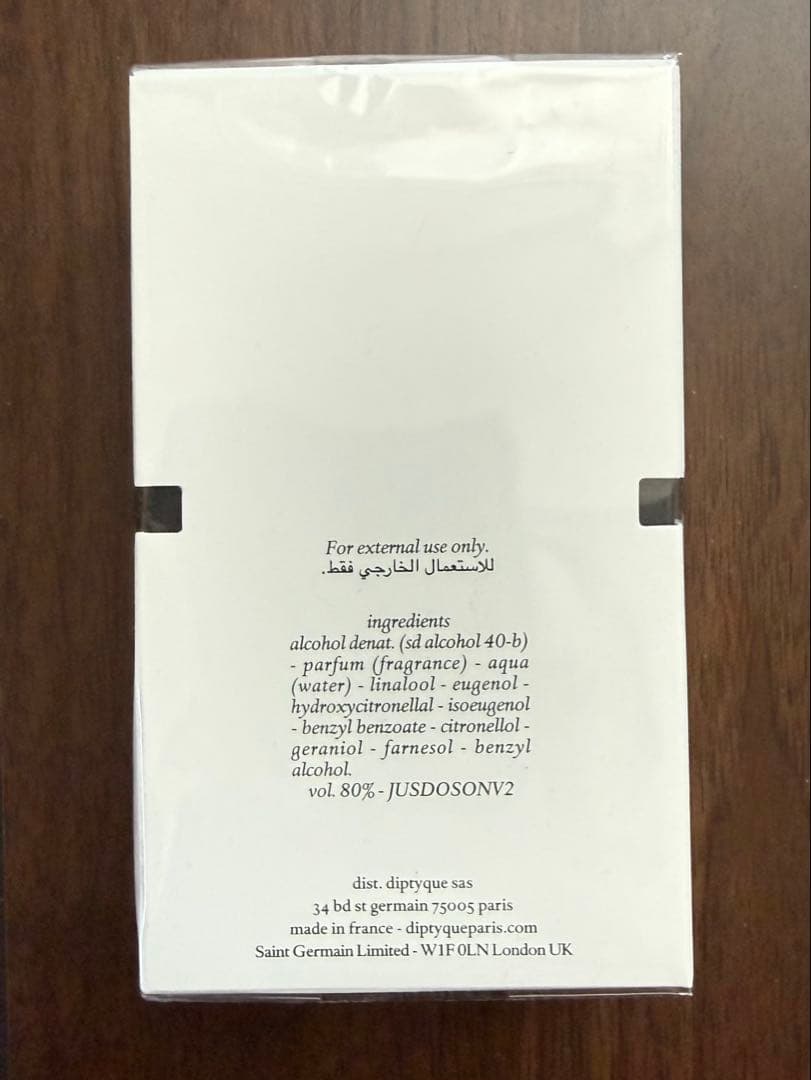 For external use only.
للاستعمال الخارجي فقط.
ingredients
alcohol denat. (sd alcohol 40-b)
- parfum (fragrance) - aqua
(water) - linalool - eugenol -
hydroxycitronellal - isoeugenol
- benzyl benzoate - citronellol -
geraniol - farnesol - benzyl
alcohol.
vol. 80% - JUSDOSONV2
dist. diptyque sas
34 bd st germain 75005 paris
made in france - diptyqueparis.com
Saint Germain Limited - W1F 0LN London UK